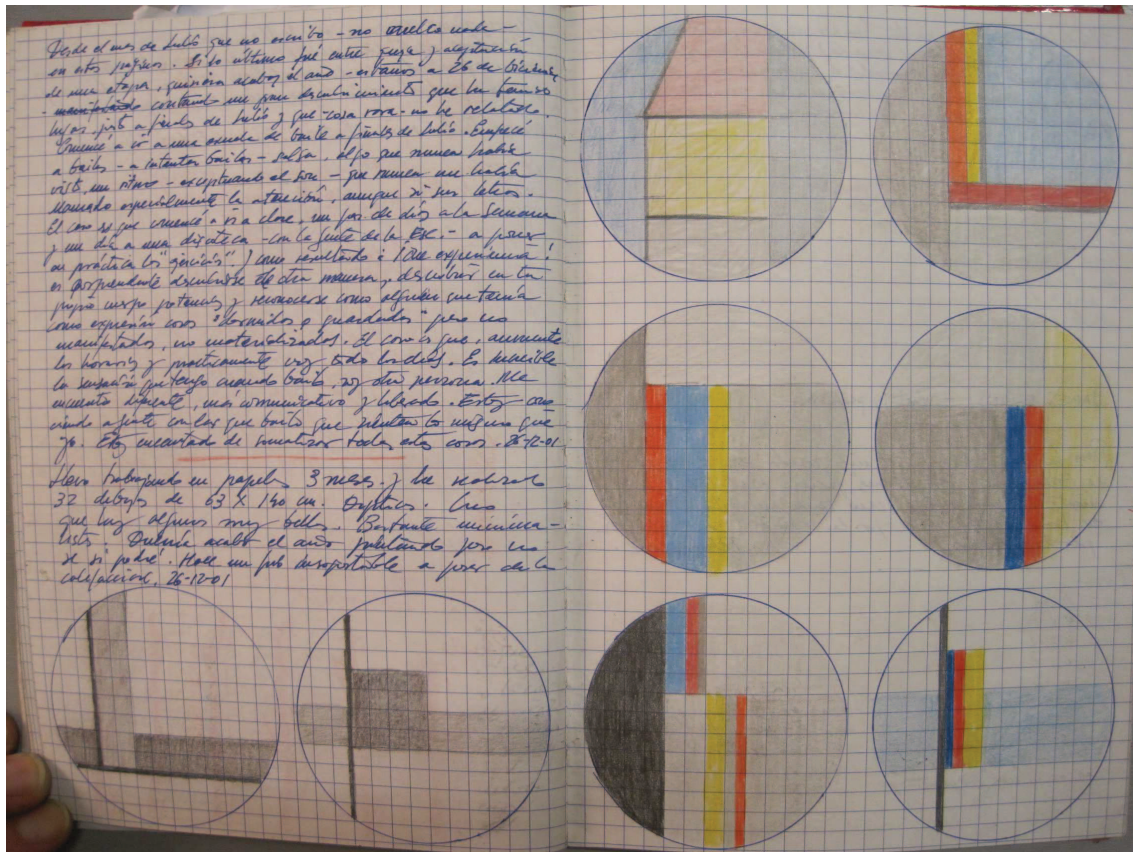 Desde el mes de Julio que no escribo - no cuelto nada -
en estas páginas. Si lo último fué entre queja y aceptación
de una etapa, quisiera acabar el año - estamos a 26 de Diciembre
- contando un gran descubrimiento que ha tenido
lugar justo a finales de Julio y que - cosa rara - no he relatado.
Comencé a ir a una escuela de baile a finales de Julio. Empecé
a bailar - a intentar bailar - salsa, algo que nunca había
visto, un ritmo - exceptuando el son - que nunca me había
llamado especialmente la atención, aunque sí sus letras.
El caso es que comencé a ir a clase, un par de días a la semana
y un día a una discoteca - con la gente de la Esc. - a poner
en práctica los "ejercicios". Y como resultado ¡Qué experiencia!
es sorprendente descubrirse de otra manera, descubrir en tu
propio cuerpo potencias y reconocerse como alguien que tenía
como expresión cosas "dormidas o guardadas" pero no
manifestadas, no materializadas. El caso es que, aumenté
las horas y practicamente voy todos los días. Es increible
la sensación que tengo cuando bailo, soy otra persona. Me
encuentro diferente, más comunicativo y liberado. Estoy cono
ciendo a gente con las que bailo que sienten lo mismo que
yo. Estoy encantado de somatizar todas estas cosas. 26-12-01
Llevo trabajando en papeles 3 meses y he realizado
32 dibujos de 63 X 140 cm. Dípticos. Creo
que hay algunos muy bellos. Bastante minima-
listas. Quería acabar el año pintando pero no
sé si podré. Hace un frío insoportable a pesar de la
calefacción. 26-12-01